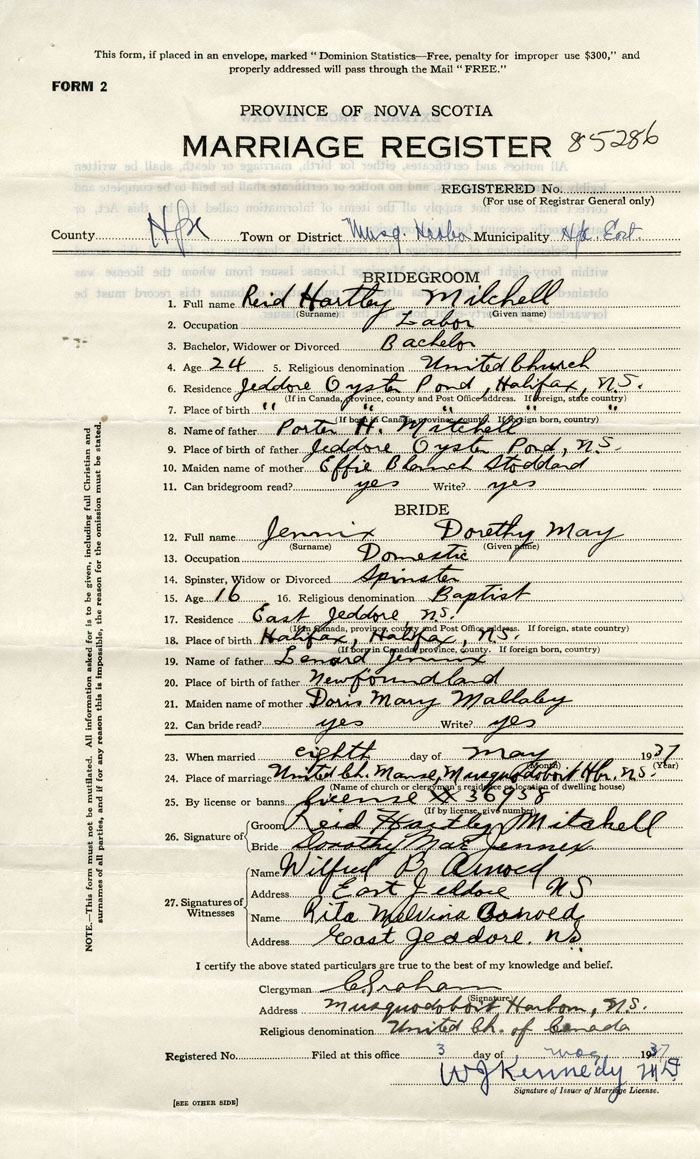 This form, if placed in an envelope, marked "Dominion Statistics—Free, penalty for improper use $300," and
properly addressed will pass through the Mail "FREE."
FORM 2
PROVINCE OF NOVA SCOTIA
MARRIAGE REGISTER 85286
REGISTERED No.
(For use of Registrar General only)
County Hfx Town or District Musq. Harbor Municipality Hfx. East.
BRIDEGROOM
1. Full name Reid Hartley Mitchell
(Surname) (Given name)
2. Occupation Labor
3. Bachelor, Widower or Divorced Bachelor
4. Age 24 5. Religious denomination United Church
6. Residence Jeddore Oyster Pond, Halifax, N.S.
(If in Canada, province, county and Post Office address. If foreign, state country)
7. Place of birth " " " " "
(If born in Canada, province, county. If foreign born, country)
8. Name of father Porter H. Mitchell
9. Place of birth of father Jeddore Oyster Pond, N.S.
10. Maiden name of mother Effie Blanch Stoddard
11. Can bridegroom read? yes Write? yes
BRIDE
12. Full name Jennix Dorethy May
(Surname) (Given name)
13. Occupation Domestic
14. Spinster, Widow or Divorced Spinster
15. Age 16 16. Religious denomination Baptist
17. Residence East Jeddore, N.S.
(If in Canada, province, county and Post Office address. If foreign, state country)
18. Place of birth Halifax, Halifax, N.S.
(If born in Canada, province, county. If foreign born, country)
19. Name of father Lenard Jennix
20. Place of birth of father Newfoundland
21. Maiden name of mother Doris Mary Mallaby
22. Can bride read? yes Write? yes
23. When married eighth day of May 1937
(Month) (Year)
24. Place of marriage United Ch. Manse, Musquodoboit Hbr. N.S.
(Name of church or clergyman's residence or location of dwelling house)
25. By license or banns license # 36958
(If by license, give number)
26. Signature of Groom Reid Hartley Mitchell
Bride Dorothy Mae Jennex
27. Signatures of Witnesses
Name Wilfred B
Address East Jeddore NS
Name Rita Melvina
Address East Jeddore. N.S.
I certify the above stated particulars are true to the best of my knowledge and belief.
Clergyman C Graham
(Signature)
Address Musquodoboit Harbour, N.S.
Religious denomination United Ch. of Canada
Registered No. Filed at this office 3 day of May 1937
W J Kennedy MD
Signature of Issuer of Marriage License.
[SEE OTHER SIDE]
NOTE.—This form must not be mutilated. All information asked for is to be given, including full Christian and
surnames of all parties, and if for any reason this is impossible, the reason for the omission must be stated.